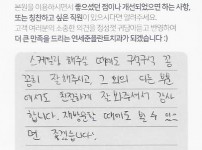 본원을 이용하시면서 좋으셨던 점이나 개선되었으면 하는 사항,
또는 칭찬하고 싶은 직원이 있으시다면 알려주세요.
고객 여러분의 소중한 의견을 정성껏 귀담아듣고 반영하여
더 큰 만족을 드리는 연세준플란트치과가 되겠습니다 :)
스케일링 해주실 때에도 구석구석 꼼
꼼히 잘 해주시고, 그 외의 다른
에서도 친절하게 잘 봐주셔서 감사
합니다. 재방문할 때에도 할 수 있으
면 좋겠습니다.